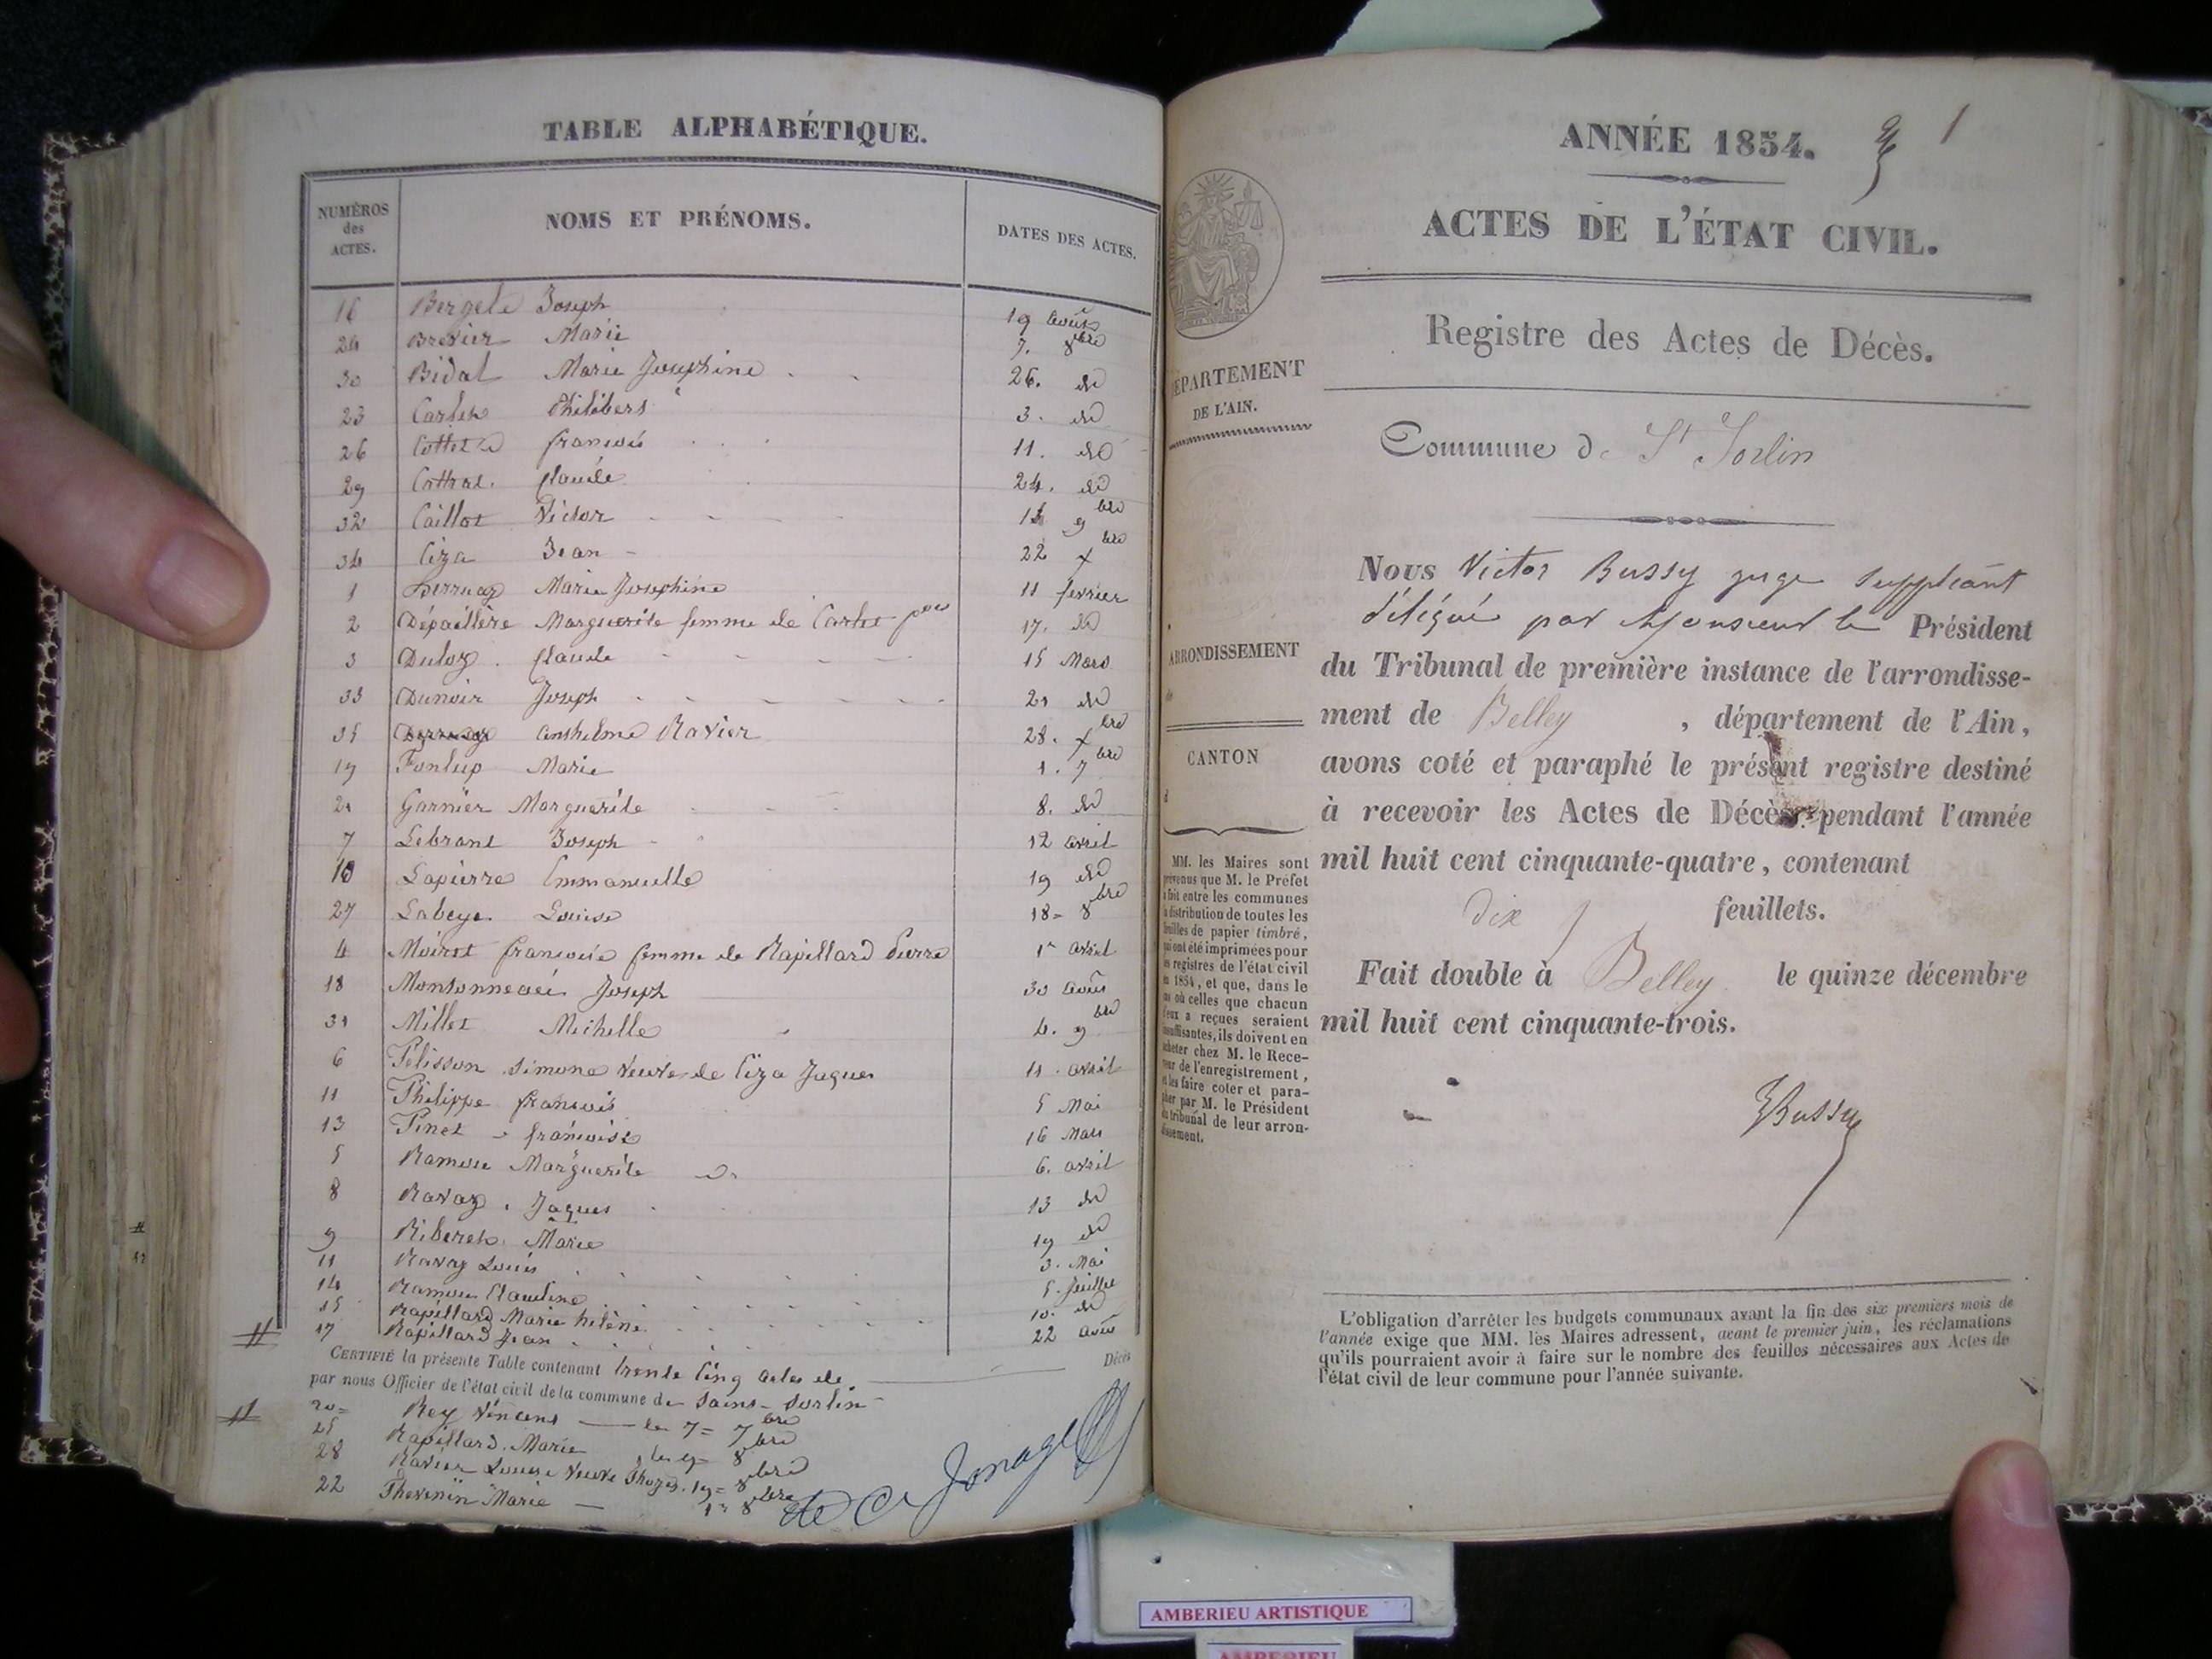 TABLE ALPHABÉTIQUE.
NUMÉROS des ACTES.
NOMS ET PRÉNOMS.
DATES DES ACTES.
16 Joseph 19 août
24 Marie 7. 8bre
30 Bidal Marie Josephine 26. do
23 3. do
26 françois 11. do
29 Claude 24. do
32 Caillot Victor 9bre
34 Ciza Jean 22 xbre
1 Marie Josephine 11 février
2 Dépaillère Marguerite femme de Carlet
17. do
3 Claude 15 Mars
33 Dunoir Joseph 21 do
35 anthelme Ravier 28. xbre
19 Fonlup Marie 1. 7bre
21 Garnier Marguerite 8. do
7 Lebrant Joseph 12 avril
10 Lapierre Emmanuelle 19 do
27 Labeye Louise 18= 8bre
4 Moiret françoise femme de Rapillard Pierre 1r avril
18 Joseph 30 août
31 Millet Michelle 4. 9bre
6 Pélisson Simone veuve de Ciza Jaques 11. avril
11 Philippe françois 5 Mai
13 Pinet françoise 16 Mai
5 Marguerite 6. avril
8 Ravaz. Jaques 13 do
9 Marie 19 do
11 Ravaz Louis 3. Mai
14 Claudine 5. Juillet
15 Rapillard Marie hélène 10. do
17 Rapillard Jean 22 août
CERTIFIÉ la présente Table contenant trente cinq actes de Décès
par nous Officier de l'état civil de la commune de Saint-Sorlin
20= Rey Vincent le 7= 7bre
25 Rapillard. Marie 8bre
28 Ravier Louise veuve 19= 8bre
22 Thevenin Marie 1r 8bre
ANNÉE 1854.
1
ACTES DE L'ÉTAT CIVIL.
Registre des Actes de Décès.
DÉPARTEMENT
DE L'AIN.
Commune de St Sorlin
ARRONDISSEMENT
CANTON
Nous Victor Bussy juge suppléant
délégué par Monsieur le Président
du Tribunal de première instance de l'arrondisse-
ment de Belley, département de l'Ain,
avons coté et paraphé le présent registre destiné
à recevoir les Actes de Décès pendant l'année
mil huit cent cinquante-quatre, contenant
dix feuillets.
Fait double à Belley le quinze décembre
mil huit cent cinquante-trois.
VBussy
MM. les Maires sont
prévenus que M. le Préfet
a fait entre les communes
la distribution de toutes les
feuilles de papier timbré,
qui ont été imprimées pour
les registres de l'état civil
en 1854, et que, dans le
cas où celles que chacun
d'eux a reçues seraient
insuffisantes, ils doivent en
acheter chez M. le Rece-
veur de l'enregistrement,
et les faire coter et para-
pher par M. le Président
du tribunal de leur arron-
dissement.
L'obligation d'arrêter les budgets communaux avant la fin des six premiers mois de
l'année exige que MM. les Maires adressent, avant le premier juin, les réclamations
qu'ils pourraient avoir à faire sur le nombre des feuilles nécessaires aux Actes de
l'état civil de leur commune pour l'année suivante.
AMBERIEU ARTISTIQUE
AMBERIEU